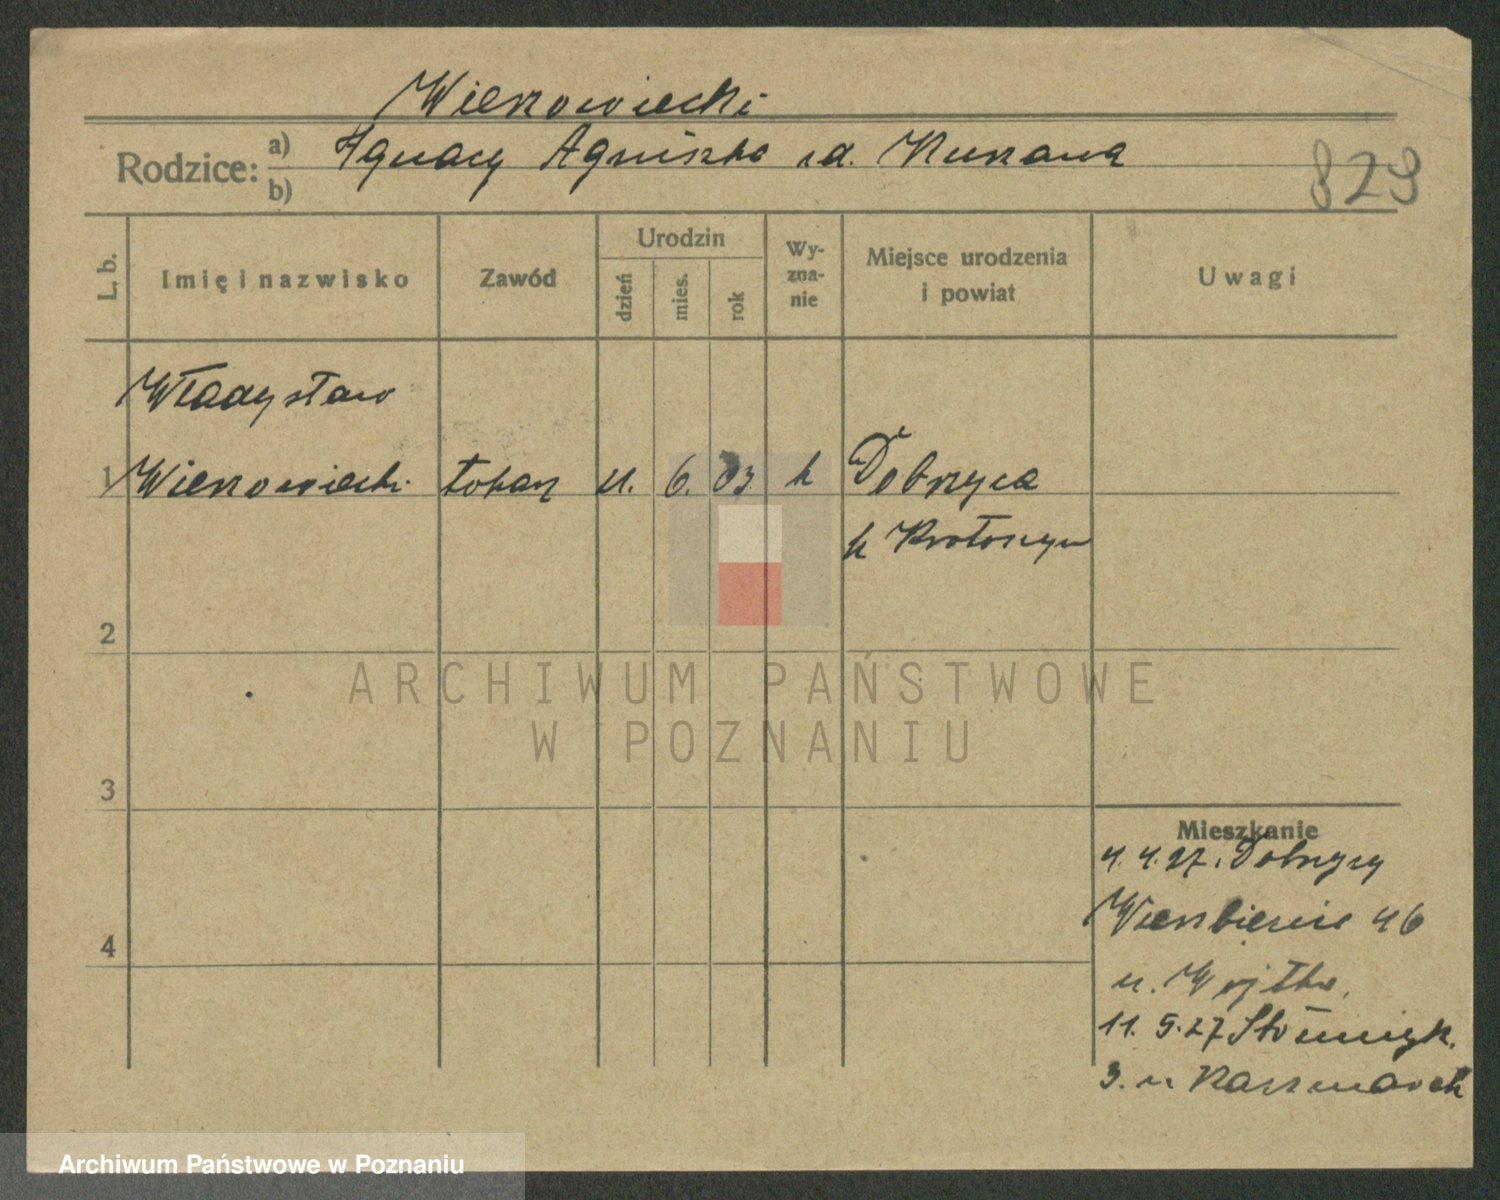 Wierzowiecki
Rodzice: a) Ignacy Agniszka
b)
829
L. b. Imię i nazwisko Zawód Urodzin dzień mies. rok Wy-zna-nie Miejsce urodzenia i powiat Uwagi
Władysław
1 Wierzowiecki tokarz 6. 03 k Dobrzyca
k Krotoszyn
2
3
4
Mieszkanie
4.4.27. Dobrzycy
Wierzbięcice 46
u. Wojtka.
11.5.27
3. u Kaczmarek
ARCHIWUM PAŃSTWOWE
W POZNANIU
Archiwum Państwowe w Poznaniu